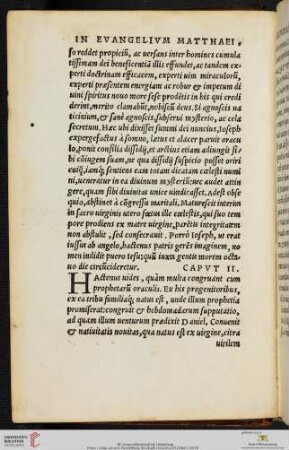 IN EVANGELIVM MATTHAEI,
so reddet propiciũ, ac uersans inter homines cumula
tissimam dei beneficentiã illis effundet, ac tandem ex
perti doctrinam efficacem, experti uim miraculorũ,
experti præsentem energiam ac robur & impetum di
uini spiritus nouo more sese prodētis in his qui credi
derint, merito clamabũt, nobiscũ deus. Si agnoscis ua
ticinium, & sanè agnoscis, subserui mysterio, ac cela
secretum. Hæc ubi dixisset summi dei nuncius, Ioseph
expergefactus à somno, lætus et alacer paruit oracu
lo, ponit consilia dissidij, et arctius etiam adiungit si
bi cōiugem suam, ne qua dissidij suspicio posset oriri
cuiq̃, tamq̃ sentiens eam totam dicatam cælesti numi
ni, ueneratur in ea diuinum mysteriũ: nec audet attin
gere, quam sibi diuinitas unice uindicasset. Adest obse
quio, abstinet à cōgressu maritali. Maturescit interim
in sacro uirginis utero fœtus ille cælestis, qui suo tem
pore prodiens ex matre uirgine, parētis integritatem
non abstulit, sed consecrauit. Porrò Ioseph, ut erat
iussus ab angelo, hactenus patris gerēs imaginem, no
men indidit puero Iesu: quũ iuxta gentis morem octa
uo die circũcideretur. CAPVT II.
HActenus uides, quàm multa congruant cum
prophetarũ oraculis. Ex his progenitoribus,
ex ea tribu familiaq̃; natus est, unde illum prophetia
promiserat: congruit & hebdomadarum supputatio,
ad quam illum uenturum prædixit Daniel. Conuenit
& natiuitatis nouitas, qua natus est ex uirgine, citra
uirilem